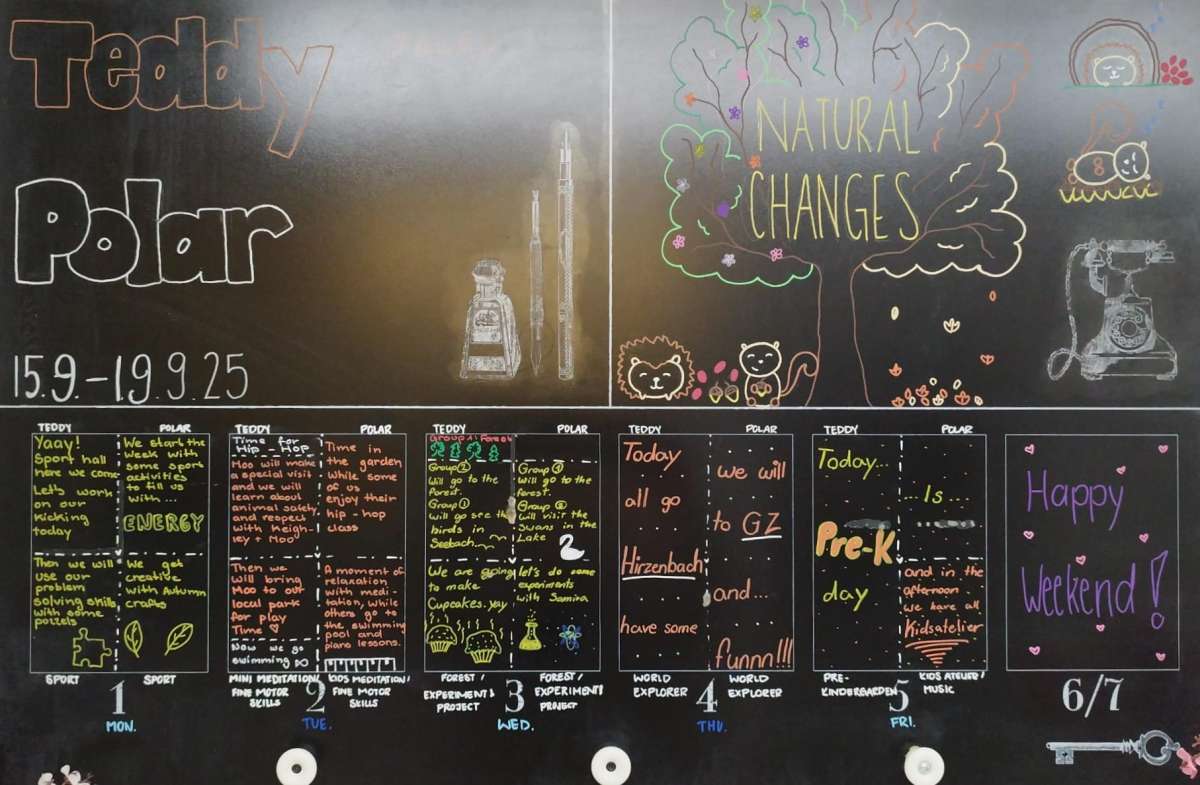 Teddy
Polar
15.9.-19.9.25
NATURAL
CHANGES
TEDDY
POLAR
Yaay!
Sport hall
here we come
Let's work
on our
kicking
today
We start the
week with
some sport
activities
to fill us
with...
ENERGY
Then we will
use our
problem
solving skills
with some
pozzels
We get
creative
with Autumn
crafts
SPORT
SPORT
1
MON.
TEDDY
POLAR
Time for
Hip-Hop
Moo will make
a special visit
and we will
learn about
animal safety
and respect
with Meigh-
ley + Moo
Time in
the garden
while some
of us
enjoy their
hip-hop
class
Then we
will bring
Moo to our
local park
for play
Time
Now we go
swimming
A moment of
relaxation
with medi-
tation, while
others go to
the swimming
pool and
piano lessons.
MINI MEDITATION/
FINE MOTOR
SKILLS
KIDS MEDITATION/
FINE MOTOR
SKILLS
2
TUE.
TEDDY
POLAR
Group 1: Forest
Group 2
Will go to the
Forest.
Group 1
will go see the
birds in
Seebach
Group 1
Will go to the
forest.
Group 2
Will visit the
Swans in the
Lake
We are going
to make
Cupcakes. yay
Let's do some
experiments
with Samira
FOREST/
EXPERIMENT&
PROJECT
FOREST/
EXPERIMENT&
PROJECT
3
WED.
TEDDY
POLAR
Today
we will
all go
to GZ
Hirzenbach
and...
have some
funnn!!!
WORLD
EXPLORER
WORLD
EXPLORER
4
THU.
TEDDY
POLAR
Today...
...Is...
Pre-K
day
and in the
afternoon
we have all
Kidsatelier
PRE-
KINDERGARDEN
KIDS ATELIER/
MUSIC
5
FRI.
Happy
Weekend!
6/7